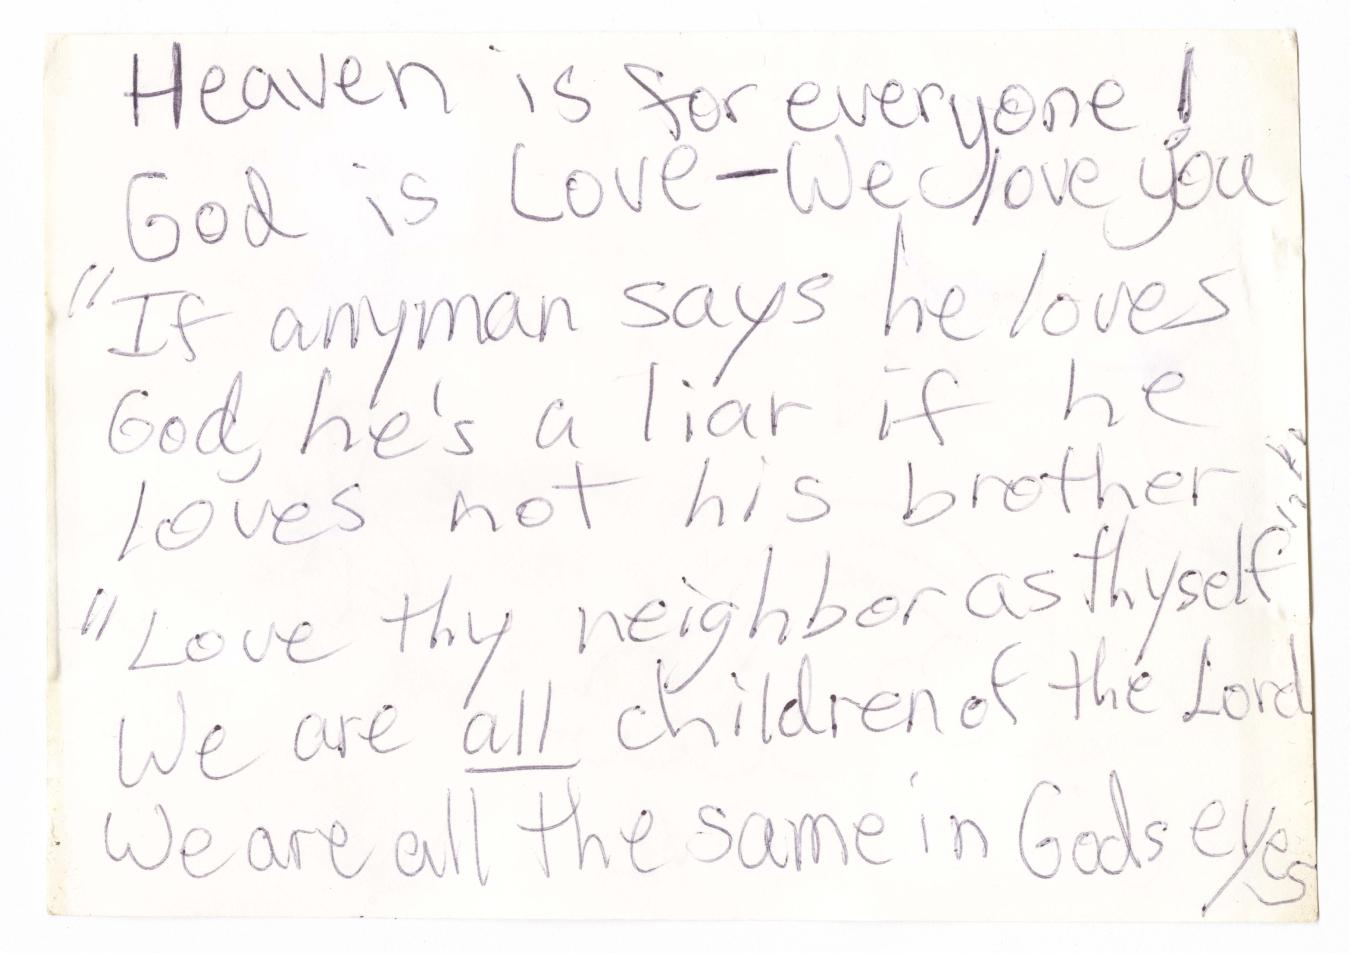 Heaven is for everyone!
God is Love—We love you
"If anyman says he loves
God, he's a liar if he
loves not his brother"
"Love thy neighbor as thyself"
We are all children of the Lord
We are all the same in Gods eyes